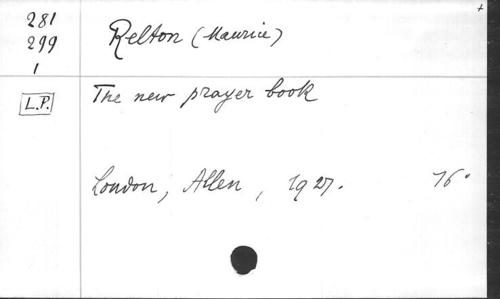 281
299
1
Relton (Maurice)
L.P.
The new prayer book
London, Allen, 1927. 16°